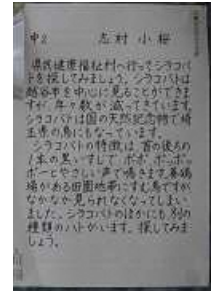 中2 志村小桜
県民健康福祉村へ行ってシラコバ
トを探してみましょう。シラコバトは
越谷市を中心に見ることができま
すが、年々数が減ってきています。
シラコバトは国の天然記念物で埼
玉県の鳥にもなっています。
シラコバトの特徴は、首の後ろの
1本の黒いすじで、ポポ ポッポッ
ポーとやさしい声で鳴きます。養鶏
場がある田園地帯にすむ鳥ですが
なかなか見られなくなってしまい
ました。シラコバトのほかにも、別の
種類のハトがいます。探してみま
しょう。